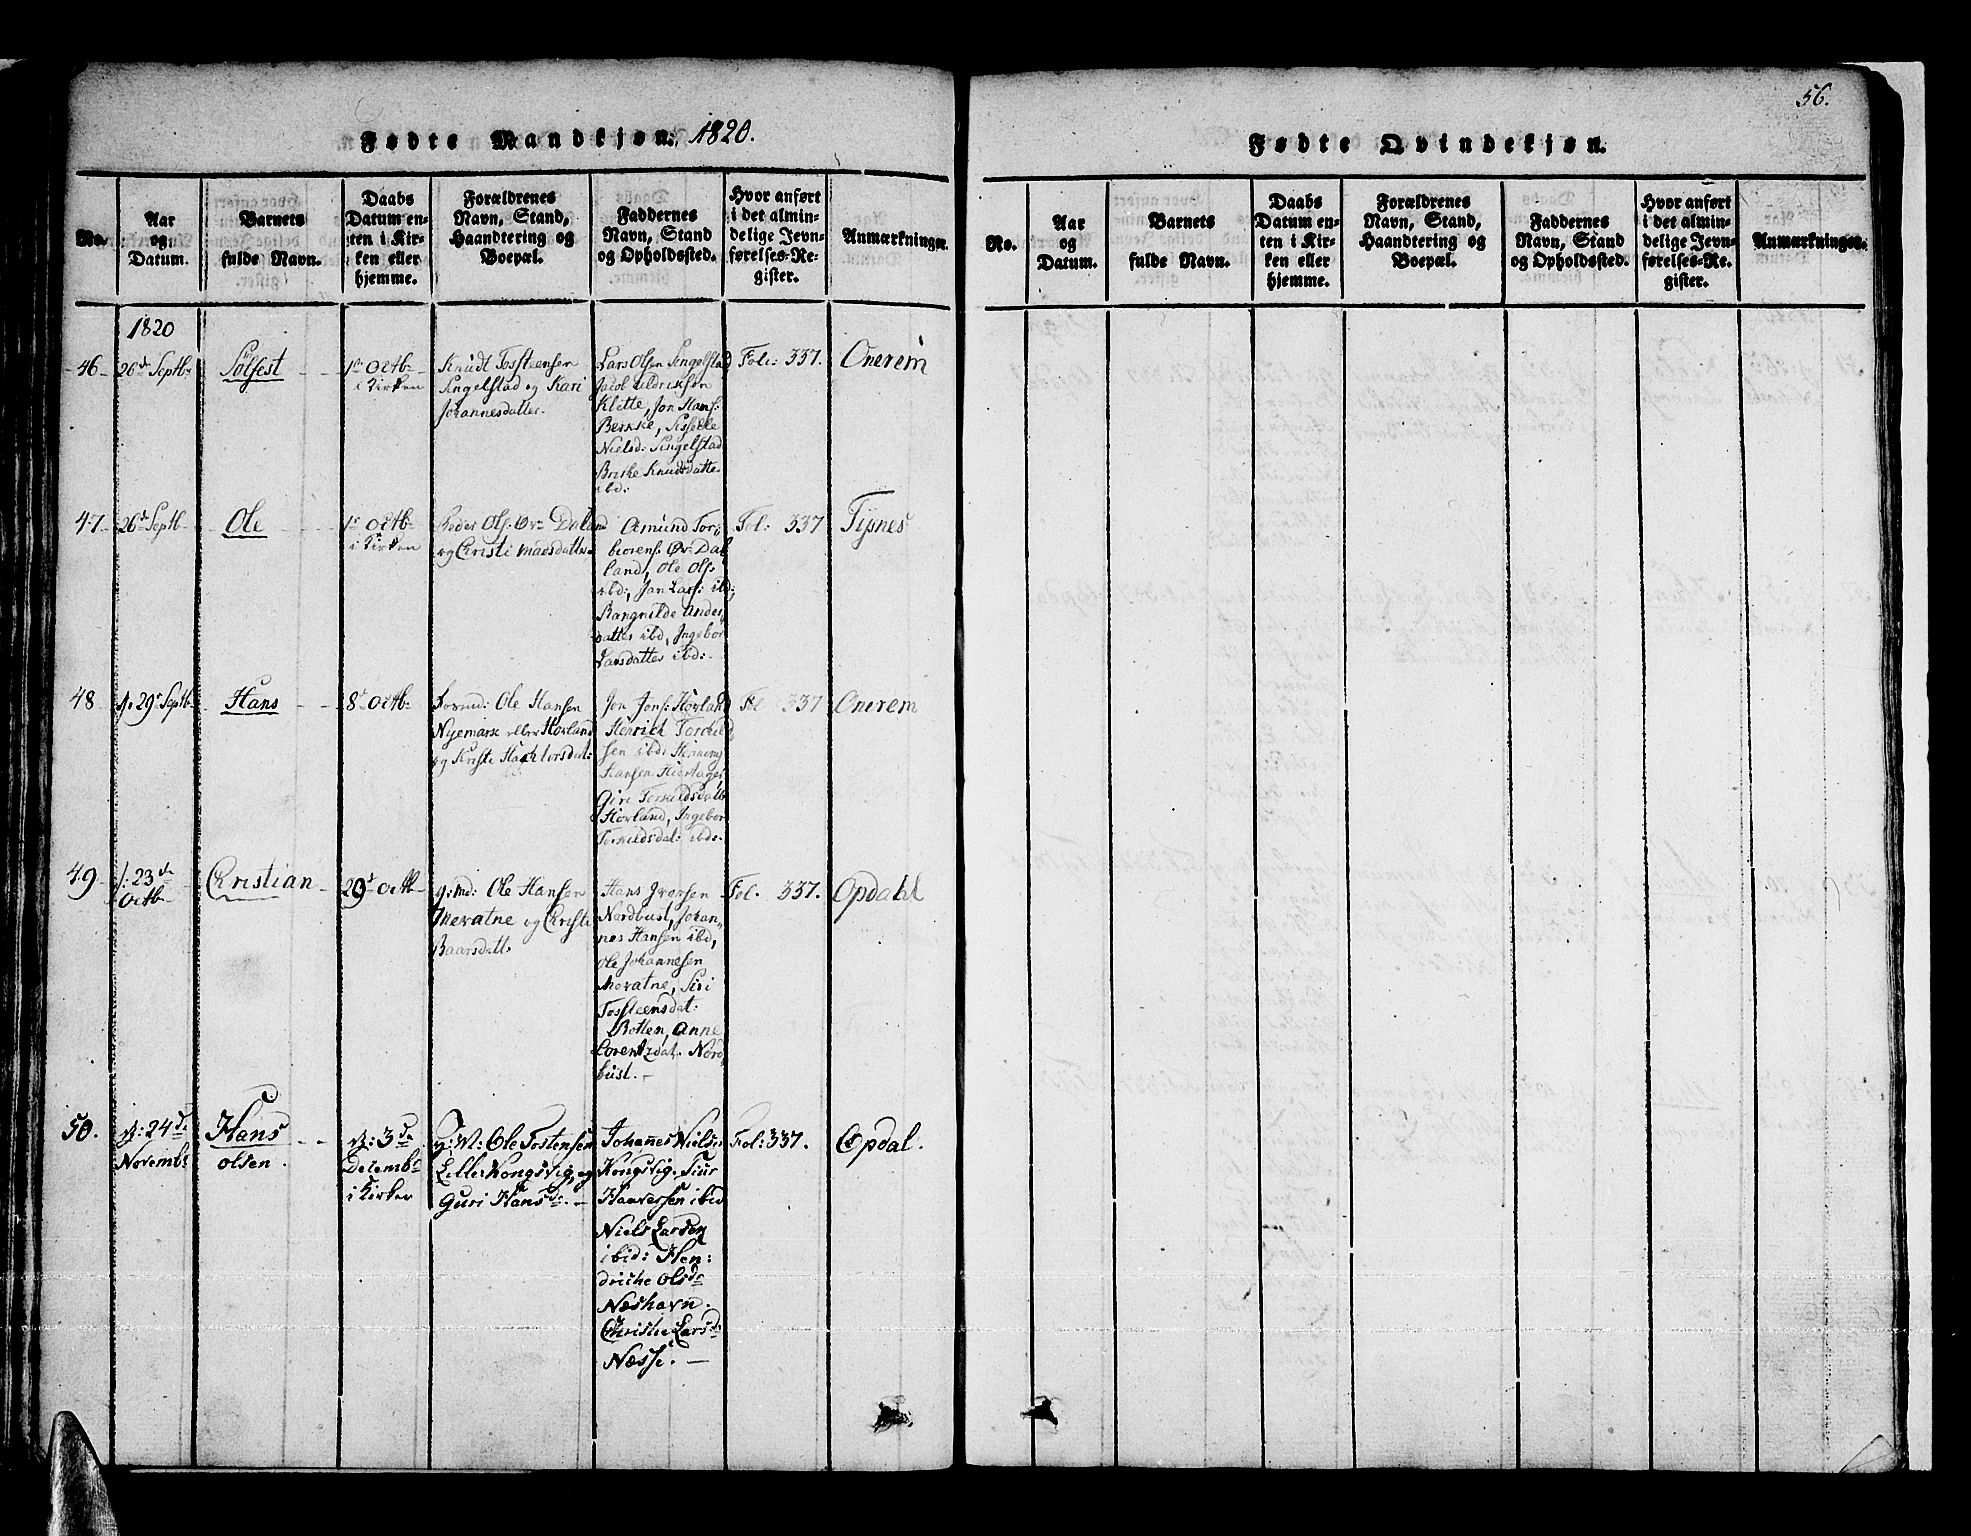 Fødte Mandkjøn. 1820.
No.
Aar
og
Datum.
Barnets
fulde Navn.
Daabs
Datum en-
ten i Kir-
ken eller
hjemme.
Forældrenes
Navn, Stand,
Haandtering og
Boepæl.
Faddernes
Navn, Stand
og Opholdssted.
Hvor anført
i det almin-
delige Jevn-
førelses-Re-
gister.
Anmærkninger.
1820
46
26d Septb.
Sölfest
1r Octb.
i Kirken
Knudt Tosteensen
Singelstad og Kari
Johannesdatter.
Lars Olsen Singelstad
Jacob Uldriksön
Klette, Jon Hans:
Berkke, Siselle
Nielsd: Singelstad
Briske Knudsdatter
ibd:
Fol: 337.
Onerem
47
26d Septb.
Ole
1r Octb.
i Kirken
Peder Ols: Ør Daland
og Christi Madsdatter.
Amund Tor:
biorens: Ør: Da
land, Ole Ols
ibd:, Jan Lars: ibd;
Rangnilde Anders
datter ibd, Ingebor
Larsdatter ibd:
Fol: 337
Tysnes
48
29r Septb.
Hans
8d Octb.
Ole Hansen
Nyemark eller Hovland
og Kristi
Jon Jons: Hovland
Henrich Torkild
sen ibd: Henning
Hansen Hiertager
Göri Torkildsdatter
Hovland, Ingebor
Torkildsdat: ibd.
Fol 337
Onerem
49
23de
Octb.
Christian
29d Octb.
g: md: Ole Hansen
Mevatne og Christi
Baarsdatt.
Hans Iversen
Nordbust, Johan
nes Hansen ibd,
Ole Johannesen
Mevatne, Siri
Tosteensdat:
Botten, Anne
Lorentzdat. Nord
bust.
Fol. 337.
Opdahl
50.
d: 24de
Novembr
Hans
olsen.
d: 3de
Decembr
i Kirken
g: M: Ole Tostensen
Lille Kongsvig, og
Guri Hansdr.
Johanes Nielsen
Kongsvig. Siur
Haaversen ibid
Niels Larsen
ibid: Hen:
driche Olsdr
Næshavn.
Christie Larsdr
Næsse.
Fol: 337.
Opdal.
56.
Fødte Qvindekjøn.
No.
Aar
og
Datum.
Barnets
fulde Navn.
Daabs
Datum en-
ten i Kir-
ken eller
hjemme.
Forældrenes
Navn, Stand,
Haandtering og
Boepæl.
Faddernes
Navn, Stand
og Opholdssted.
Hvor anført
i det almin-
delige Jevn-
førelses-Re-
gister.
Anmærkninger.